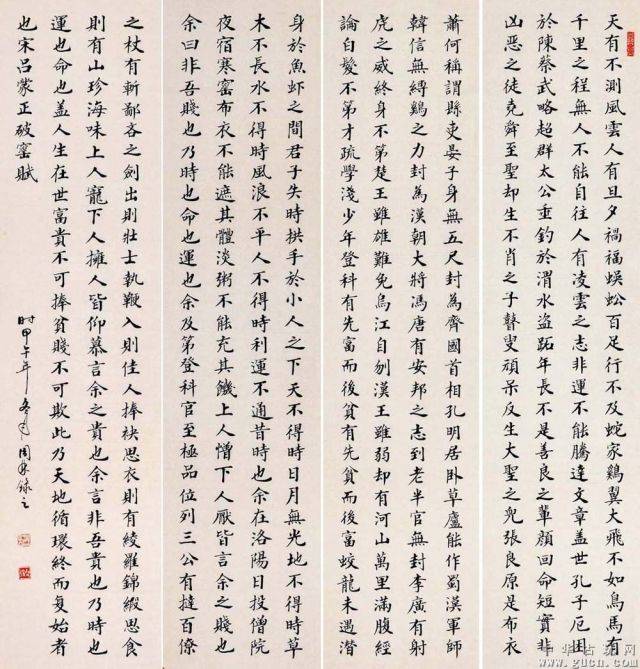 天有不測風雲人有旦夕禍福蜈蚣百足行不及蛇家鷄翼大飛不如鳥馬有
千里之程無人不能自往人有凌雲之志非運不能騰達文章盖世孔子厄困
於陳蔡武略超群太公垂釣於渭水盜跖年長不是善良之輩顔回命短實非
凶惡之徒堯舜至聖却生不肖之子瞽叟頑呆反生大聖之兒張良原是布衣
蕭何稱謂縣吏晏子身無五尺封為齊國首相孔明居卧草廬能作蜀漢軍師
韓信無縛鷄之力封為漢朝大將馮唐有安邦之志到老半官無封李廣有射
虎之威終身不第楚王雖雄難免烏江自刎漢王雖弱却有河山萬里滿腹經
論白髮不第才疏學淺少年登科有先富而後貧有先貧而後富蛟龍未遇潛
身於魚虾之間君子失時拱手於小人之下天不得時日月無光地不得時草
木不長水不得時風浪不平人不得時利運不通昔時也余在洛陽日投僧院
夜宿寒窑布衣不能遮其體淡粥不能充其饑上人憎下人厭皆言余之賤也
余曰非吾賤也乃時也命也運也余及第登科官至極品位列三公有撻百僚
之杖有斬鄙吝之劍出則壯士執鞭入則佳人捧袂思衣則有綾羅錦緞思食
則有山珍海味上人寵下人擁人皆仰慕言余之貴也余言非吾貴也乃時也
運也命也盖人生在世富貴不可捧貧賤不可欺此乃天地循環終而复始者
也宋吕蒙正破窑賦
时甲午年冬月周錄之
中华古玩网
www.gucn.com